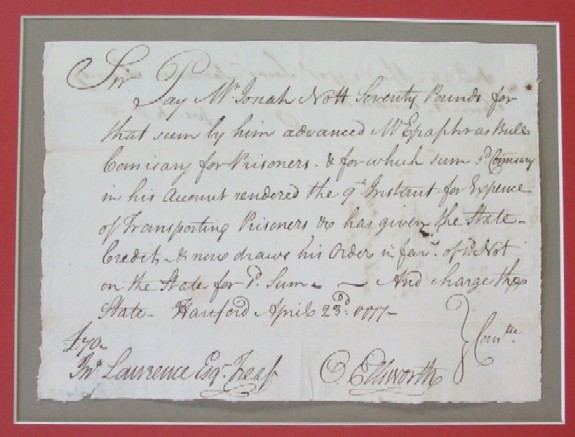 Sir Pay Mr. Jonah Nott Seventy Pounds for
that sum by him advanced Mr Epaphras Bull
Comisary for Prisoners - & for which sum sd. Comisary
in his Account rendered the 9th Instant for Expence
of Transporting Prisoners &c has given the State
Credit - & now draws his Order in favr. of sd. Not
on the State for sd. Sum - And charge the
State - Harford April 23d. 1777 -
£70 -
Jno. Lawrence Esqr. Treasr O Ellsworth } Comtte.